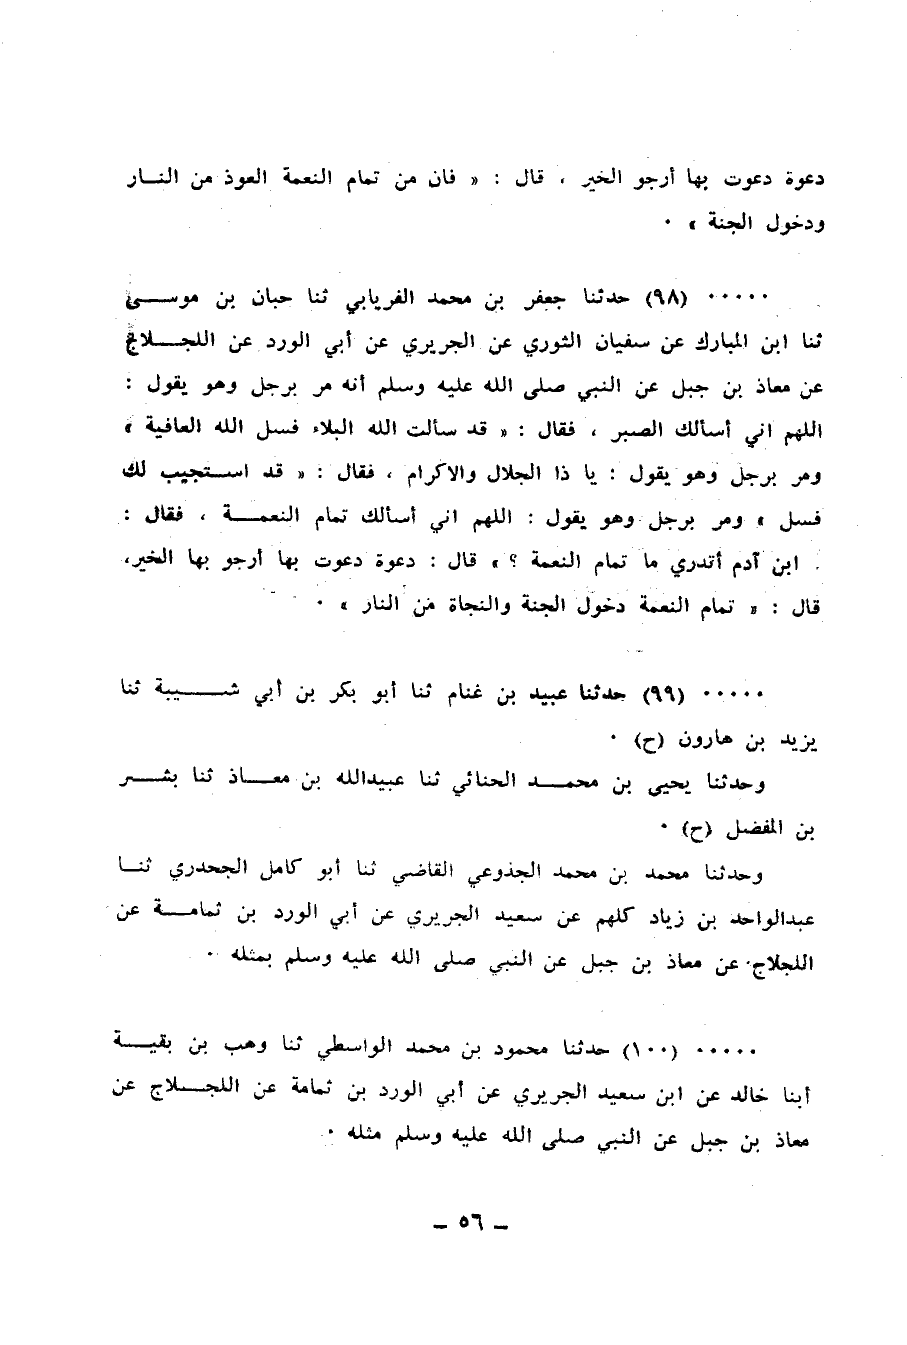 دعوة دعوت بها أرجو الخير ، قال : « فان من تمام النعمة العوذ من النـار
ودخول الجنة » ٠
٠٠٠٠٠ (٩٨) حدثنا جعفر بن محمد الفريابي ثنا حبان بن موســى
ثنا ابن المبارك عن سفيان الثوري عن الجريري عن أبي الورد عن اللجــلاج
عن معاذ بن جبل عن النبي صلى الله عليه وسلم أنه مر برجل وهو يقول :
اللهم اني أسألك الصبر ، فقال : « قد سألت الله البلاء فسل الله العافية »
ومر برجل وهو يقول : يا ذا الجلال والاكرام ، فقال : « قد اسـتجيب لك
فسل » ومر برجل وهو يقول : اللهم اني أسألك تمام النعمـــة ، فقال :
ابن آدم أتدري ما تمام النعمة ؟ » قال : دعوة دعوت بها أرجو بها الخير،
قال : « تمام النعمة دخول الجنة والنجاة من النار » ٠
٠٠٠٠٠ (٩٩) حدثنا عبيد بن غنام ثنا أبو بكر بن أبي شـــيبة ثنا
يزيد بن هارون (ح) ٠
وحدثنا يحيى بن محمـــد الحنائي ثنا عبيدالله بن معــاذ ثنا بشــر
بن المفضل (ح) ٠
وحدثنا محمد بن محمد الجذوعي القاضي ثنا أبو كامل الجحدري ثنــا
عبدالواحد بن زياد كلهم عن سعيد الجريري عن أبي الورد بن ثمامــة عن
اللجلاج عن معاذ بن جبل عن النبي صلى الله عليه وسلم بمثله ٠
٠٠٠٠٠ (١٠٠) حدثنا محمود بن محمد الواسطي ثنا وهب بن بقيــة
أبنا خالد عن ابن سعيد الجريري عن أبي الورد بن ثمامة عن اللجــلاج عن
معاذ بن جبل عن النبي صلى الله عليه وسلم مثله ٠
ـ ٥٦ ـ